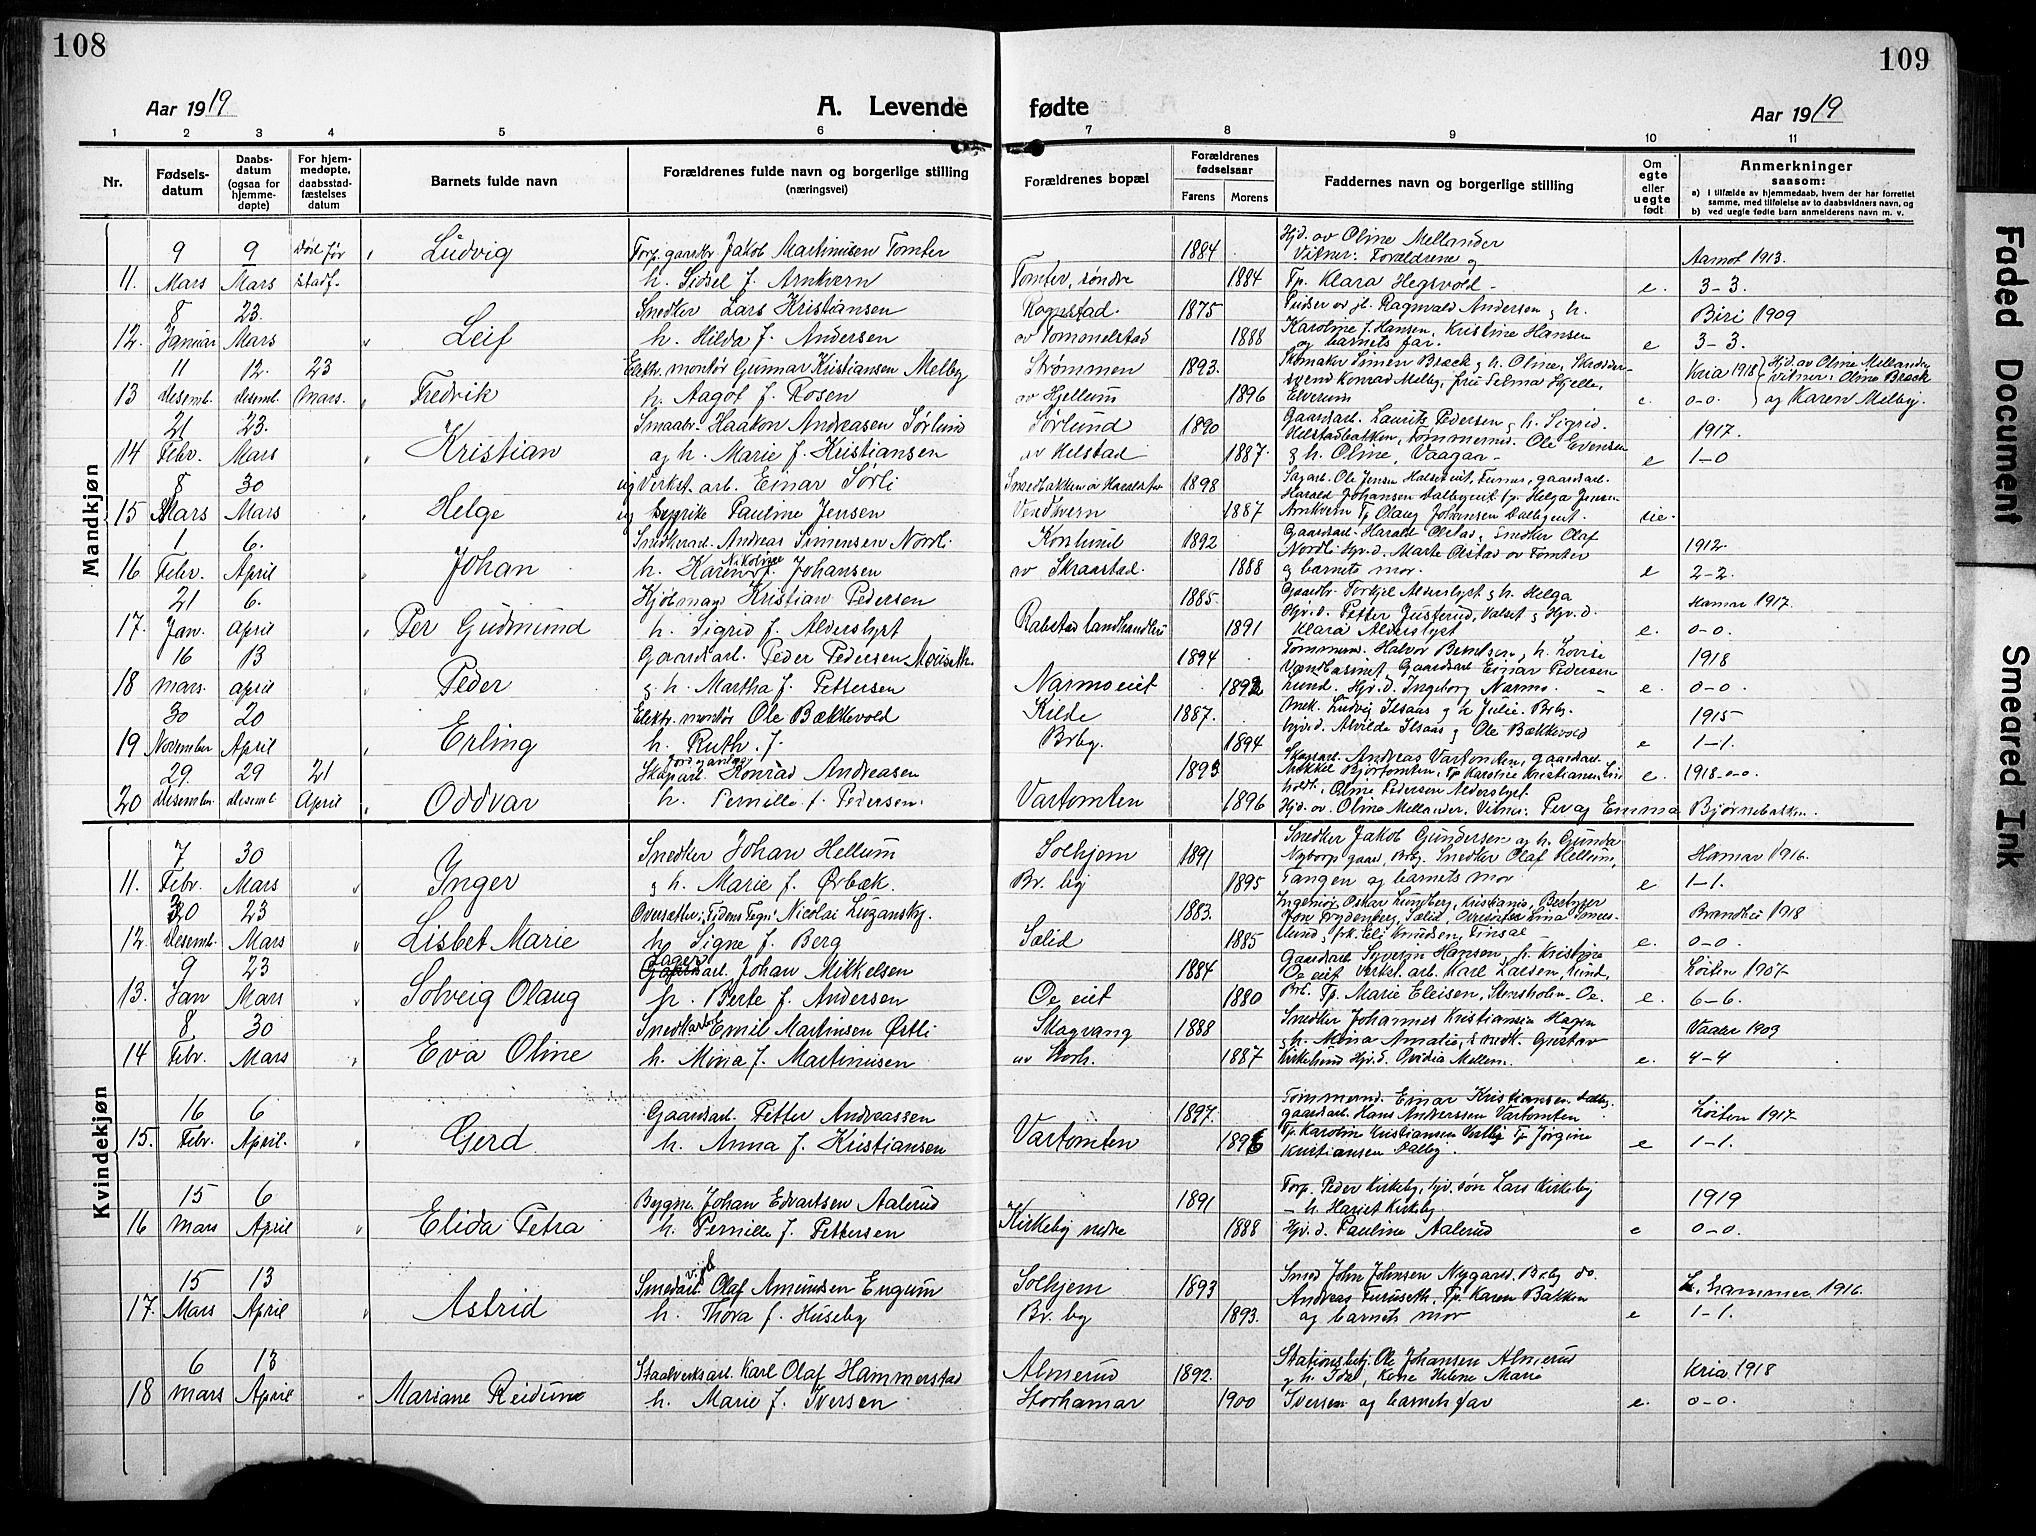 108
109
Aar 1919
A. Levende
fødte
Aar 1919
1 2 3 4 5 6 7 8 9 10 11
Nr.
Fødsels-
datum
Daabs-
datum
(ogsaa for
hjemme-
døpte)
For hjem-
medøpte,
daabsstad-
fæstelses
datum
Barnets fulde navn
Forældrenes fulde navn og borgerlige stilling
(næringsvei)
Forældrenes bopæl
Forældrenes
fødselsaar
Farens Morens
Faddernes navn og borgerlige stilling
Om
egte
eller
uegte
født
Anmerkninger
saasom:
a) I tilfælde av hjemmedaab, hvem der har forrettet
samme, med tilføielse av to daabsvidners navn, og
b) ved uegte fødte barn anmelderens navn m. v.
Mandkjøn
9 9 Død før Ludvig Forp. gaardbr. Jakob Martinusen Tomter 1884 Hjd. av Oline Mellander
Vitner: Forældrene og Aamot 1913.
11. Mars Mars stadf. h. Sidsel f. Arnkvern Tomter, søndre 1884 Fp. Klara Hegsvold e. 3-3.
8 23. Snedker Lars Kristiansen Rognstad 1875 Pudser av jl. Ragnvald Andersen og h. Biri 1909
12. Januar Mars Leif h. Hilda f. Andersen av Tommelstad 1888 Karoline f. Hansen, Kristine Hansen
og barnets far. e 3-3.
11 12. 23 Elektr. montør Gunnar Kristiansen Melby Strømmen 1893. Skomaker Simen Bræck og h. Oline, Skrædder- Kria 1918 Hjd. av Oline Mellander
13 Desemb. Desemb. Mars. Fredrik h. Aagot f. Rosen av Hjellum 1896 svend Konrad Melby, frk Selma Hjelle, Elverum e. 0-0. vitner: Oline Bræck og Karen Melby.
21 23. Smaabr. Haakon Andreasen Sørlund Sørlund 1890 Gaardarb. Laurits Pedersen og h. Sigrid. 1917.
14 Febr. Mars Kristian og h. Marie f. Kristiansen av Helstad 1887. Helstadbakken, Tømmermd. Ole Evensen
og h. Oline, Vaagar e 1-0
8 30 ug Verkst. arb. Einar Sørli Smedbakken av Haralstad 1898 Sagarb. Ole Jensen Halset eit, Furnes, gaardarb.
15 Mars Mars Helge ug Pauline Jensen Vendkvern 1887 Harald Johansen Dalbyeit Fp. Helga Jensen
Arnkvern Fp Olaug Johansen Dalbyeit. ue.
1 6. Snedkerarb. Andreas Simensen Nordli Kornlund 1892 Gaardsarb. Harald Olstad, Snedker Olaf 1912.
16 Febr. April Johan h. Karen Nikoline f. Johansen av Skraastad. 1888 Nordli. Hjv. d. Marte Olstad av Tomter
og barnets mor. e 2-2.
21 6. Kjøbmand Kristian Pedersen 1885. Gaardbr. Torkjel Alderslyst og h. Helga Hamar 1917.
17. Jan. april Per Gudmund h. Sigrid f. Alderslyst Rabstad landhandleri 1891 Hjv. d. Petter Justerud, Valset og Hjv. d.
Klara Alderslyst e. 0-0.
16 13 Gaardsarb. Peder Pedersen 1894 Tømmerm. Halvor Berntsen og h. Lovise 1918
18 mars. april Peder og h. Martha f. Pettersen Narmoeiet 1892 Gaardsarb Einar Pedersen
Lund. Hjv. d. Ingeborg Narmo. e. 0-0.
30 20 Elektr. montør Ole Bækkevold Kilde 1887. Mek. Ludvig Ilsaas og h Julie. Brby. 1915
19 November April Erling h. Ruth. f. Brby. 1894 hjv. d. Alvilde Ilsaas og Ole Bækkevold e 1-1.
29. 29 21 Skogarb. Konrad Andreasen 1893 Skogarb. Andreas Vartomten, gaardsarb.
Mikkel Bjørtomten, Fp Karoline Kristiansen e. 1918-0-0.
20 Desember Desemb. April Oddvar h. Pernille f. Pedersen. Vartomten 1896 Oline Pedersen Alderslyst
Hjd. av. Oline Mellander. Vitner: Per og Emma Bjørnebakken.
Kvindekjøn
7 30 Snedker Johan Hellum Solhjem 1891 Snedker Jakob Gundersen og h. Gunda Hamar 1916.
Nyborg gaar, Brby. Snedker Olaf Hellum,
11. Febr. Mars Ynger og h. Marie f. Ørbæk. Br. by 1895 Tangen og barnets mor e 1-1.
30 23 Oversætter i "Tidens Tegn" Nicolai Luzansky. 1883. Ingeniør Oskar Lundberg, Kristiania, Bestyrer Brandbu 1918
12. Desemb. Mars Lisbet Marie h. Signe f. Berg Sælid 1885 Jon Frydenberg, Sælid,
lund, frk. Eli Knudsen, Finsal e. 0-0.
9 23 Lagerarb. Johan Mikkelsen 1884 Gaardsarb. Syverin Hansen, h. Kristine Løiten 1907
13. Jan Mars Solveig Olaug h. Berte f. Andersen Oe eiet 1880 Oe eiet Verkst. arb. Karl Larsen, Lund,
Brb. Fp. Marie Eleisen, Stensholen - Oe. e. 6-6.
8 30 Snedkerarb Emil Martinsen Østli Skogvang 1888 Snedker Johannes Kristiansen Hagen Vaaler 1909
14 Febr. Mars Eva Oline h. Maria f. Martinusen av Storh. 1887 og h. Mina Amalie, Smedk. Gustav
Kirkelund Hjv. d. Ovidia Mellem. e. 4-4
16 6 Gaardsarb. Petter Andreassen 1897. Tømmermd. Einar Kristiansen Dalby. Løiten 1917
gaardsarb. Hans Anderssen Vartomten
15. Febr. April. Gerd h. Anna f. Kristiansen Vartomten 1896 Fp. Karoline Kristiansen Vestby Fp Jørgine
Kristiansen Dalby. e 1-1.
15 6 Bygm. Johan Edvartsen Aalerud 1891 Forp. Peder Kirkeby, hjv. søn Lars Kirkeby 1919
- h. Hariet Kirkeby.
16 mars April Elida Petra h. Pernille f. Pettersen Kirkeby nedre 1888 Hjv. d. Pauline Aalerud e 0-0.
15 13 Smedarb v. jb Olaf Amundsen Engum Solhjem 1893 Smed John Johnsen Nygaard. Brby do. L.hammer 1916.
17. Mars April Astrid h. Thora f. Huseby Br. by 1893. Andreas Furuseth, Fp. Karen Bakken
og barnets mor e 1-1.
6 13 Staalverksarb. Karl Olaf Hammerstad Almerud 1892. Stationsbetj. Ole Johansen Almerud Kria 1918
og h. Ida, Kone Helene Marie
18 mars April Mariane Reidun h. Marie f. Iversen Storhamar 1900 Iversen og barnets far e. 0-0.
Faded Document
Smeared Ink